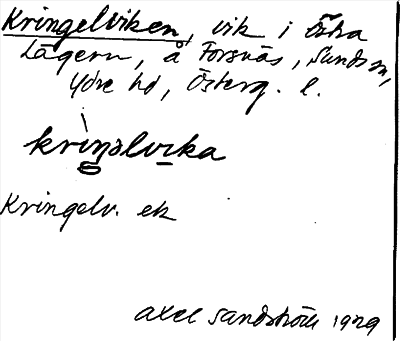 Kringelviken, vik i Östra
Lägern, å Forsnäs, Sunds sn,
Ydre hd, Österg. l.
kriŋəlvika
Kringelv. ek
Axel Sandström 1929